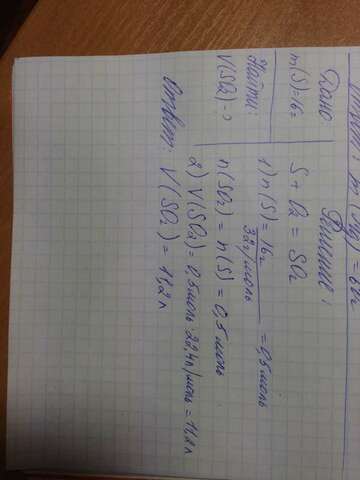 Дано:
m(S)=16г
Найти:
V(SO₂)-?
Решение:
S + O₂ = SO₂
1) n(S) = 16г / 32г/моль = 0,5моль
n(SO₂) = n(S) = 0,5 моль
2) V(SO₂) = 0,5моль·22,4л/моль = 11,2л
Ответ: V(SO₂) = 11,2л